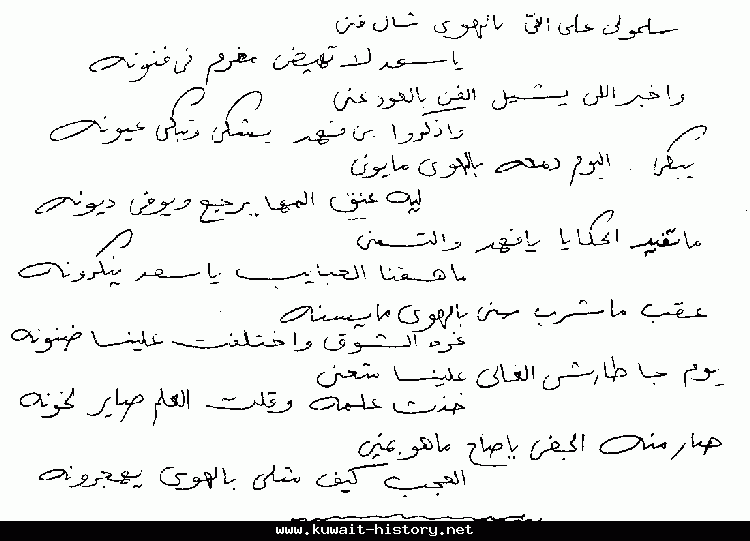 سلمولي على اللي بالهوى شال فن
يا سعد لا تهيض مغرم في فنونه
واخبر اللي يشيل الفن بالعود عني
واذكروا بن فهد يشكي وتبكي عيونه
يبكي اليوم دمعه بالهوى مايوني
ليه عنق المها يرجع ويوفي ديونه
ماتفيد الحكايا يا فهد والتمني
ما هقينا الحبايب يا سعد ينكرونه
عقب ما شرب مني بالهوى ما يسنه
غره الشوق واختلفت علينا ضنونه
يوم جا طارش الغالي علينا متعني
خذت علمه وقلت العلم صاير لخونه
صار منه الجفى يا صاح ماهو بمني
العجب كيف مثلي بالهوى يهجرونه
www.kuwait-history.net